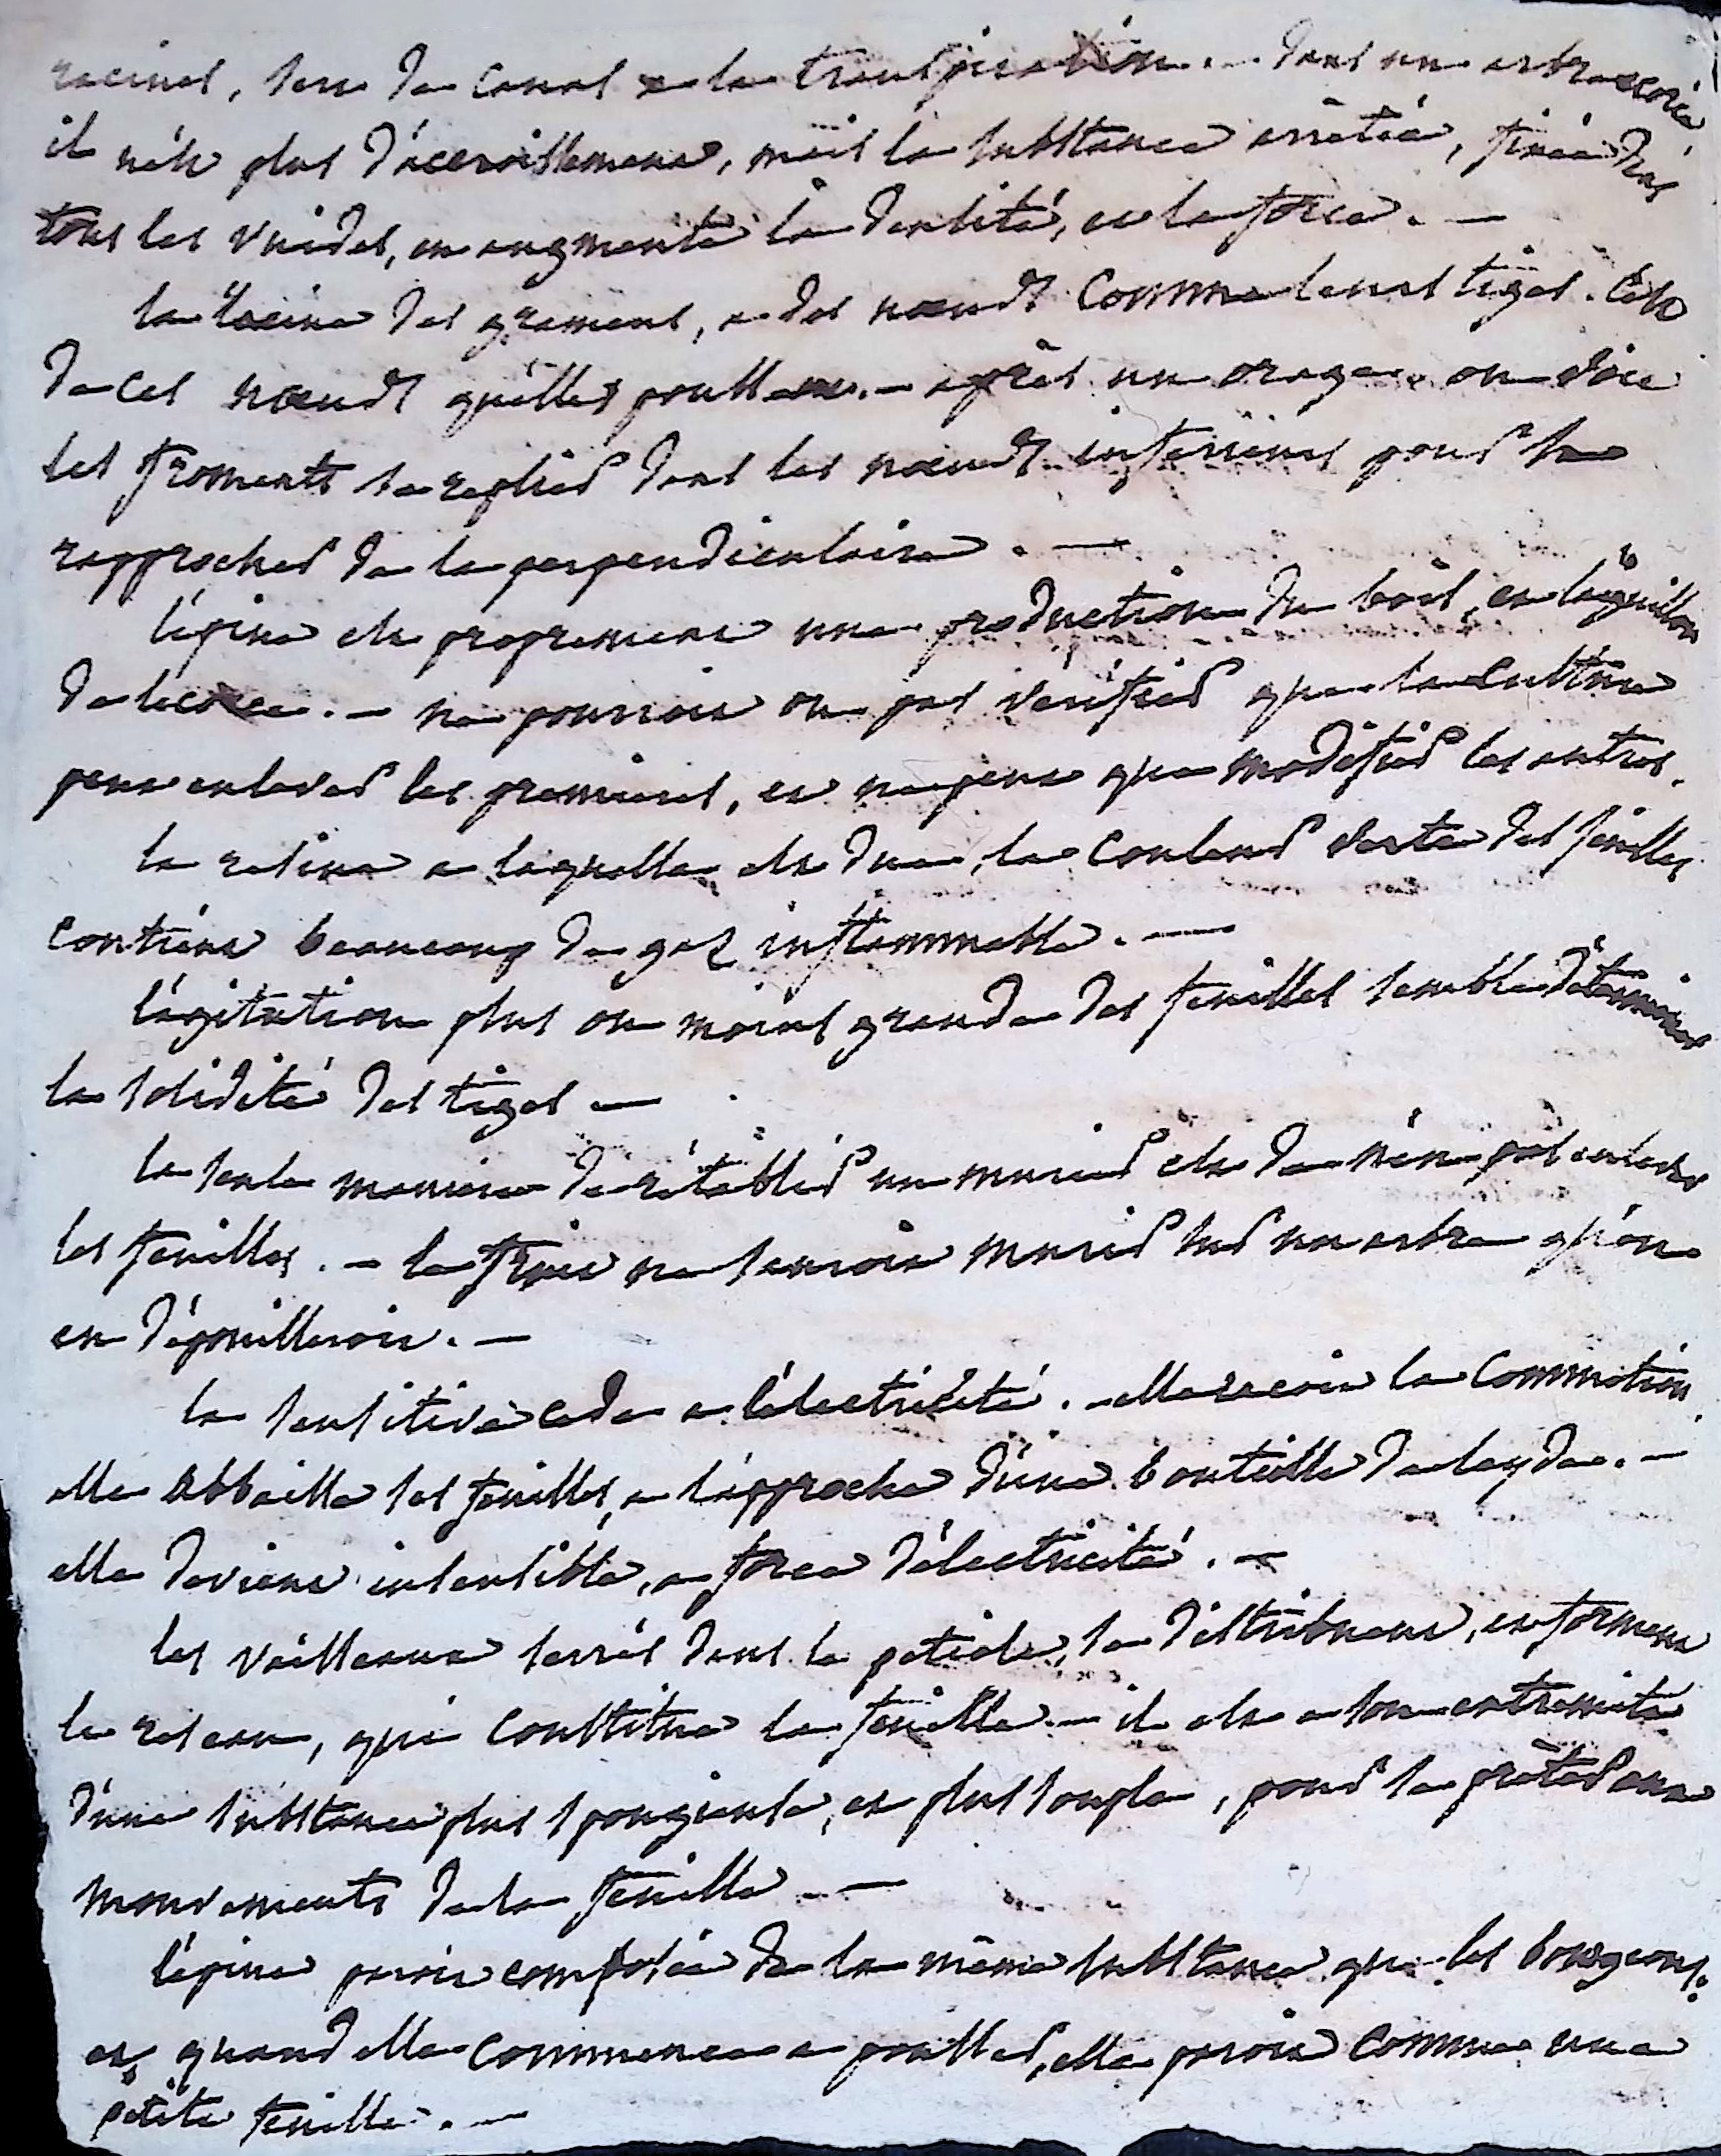 racines, sert de canal a la transpiration. – dans un arbre écorcé,
il n'est plus d'accroissement, mais la substance arretée, fixée dans
tous les vuides, en augmente la densité, et la force. –
la racine des gramens, a des nœuds comme leurs tiges. C'est
de ces nœuds qu'elles poussent. – après un orage on voit
les froments se replier dans les nœuds inferieurs pour se
rapprocher de la perpendiculaire. –
l'épine est proprement une production du bois, et l'aiguillon
de l'ecorce. – ne pourroit on pas vérifier que la culture
peut enlever les premieres, et ne peut que modifier les autres.
la resine a laquelle est due, la couleur verte des feuilles,
contient beaucoup de gaz inflammable. –
l'agitation plus ou moins grande des feuilles semble déterminer
la solidité des tiges –
la seule maniere de rétablir un murier est de n'en pas enlever
les feuilles. – le fruit ne sauroit murir sur un arbre qu'on
en dépouilleroit. –
la sensitive cede a l'électricité. – elle reçoit la commotion.
elle abbaisse ses feuilles, a l'approche d'une bouteille de leyde. –
elle devient insensible, a force d'électricité. –
les vaisseaux serrés dans le petiole, se distribuent, et forment
le reseau, qui constitue la feuille. – il est a son extremité
d'une substance plus spongieuse, et plus souple, pour se prêter aux
mouvements de la feuille. –
l'épine paroit composée de la même substance que les bourgeons.
et quand elle commence a pousser, elle paroit comme une
petite feuille. –